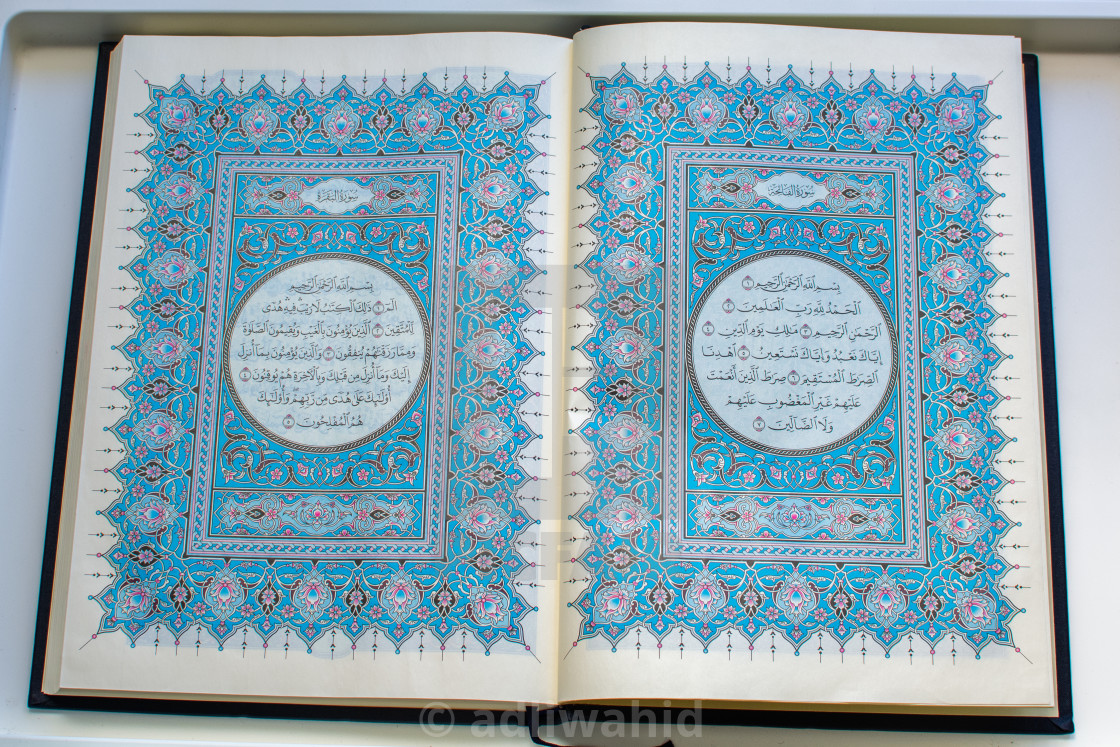 سورة الفاتحة
بِسْمِ ٱللَّهِ ٱلرَّحْمَٰنِ ٱلرَّحِيمِ ١
ٱلْحَمْدُ لِلَّهِ رَبِّ ٱلْعَٰلَمِينَ ٢
ٱلرَّحْمَٰنِ ٱلرَّحِيمِ ٣ مَٰلِكِ يَوْمِ ٱلدِّينِ ٤
إِيَّاكَ نَعْبُدُ وَإِيَّاكَ نَسْتَعِينُ ٥ ٱهْدِنَا
ٱلصِّرَٰطَ ٱلْمُسْتَقِيمَ ٦ صِرَٰطَ ٱلَّذِينَ أَنْعَمْتَ
عَلَيْهِمْ غَيْرِ ٱلْمَغْضُوبِ عَلَيْهِمْ
وَلَا ٱلضَّآلِّينَ ٧
سورة البقرة
بِسْمِ ٱللَّهِ ٱلرَّحْمَٰنِ ٱلرَّحِيمِ
الٓمٓ ١ ذَٰلِكَ ٱلْكِتَٰبُ لَا رَيْبَ ۛ فِيهِ ۛ هُدًى
لِّلْمُتَّقِينَ ٢ ٱلَّذِينَ يُؤْمِنُونَ بِٱلْغَيْبِ وَيُقِيمُونَ ٱلصَّلَوٰةَ
وَمِمَّا رَزَقْنَٰهُمْ يُنفِقُونَ ٣ وَٱلَّذِينَ يُؤْمِنُونَ بِمَآ أُنزِلَ
إِلَيْكَ وَمَآ أُنزِلَ مِن قَبْلِكَ وَبِٱلْءَاخِرَةِ هُمْ يُوقِنُونَ ٤
أُو۟لَٰٓئِكَ عَلَىٰ هُدًى مِّن رَّبِّهِمْ ۖ وَأُو۟لَٰٓئِكَ
هُمُ ٱلْمُفْلِحُونَ ٥
© adliwahid